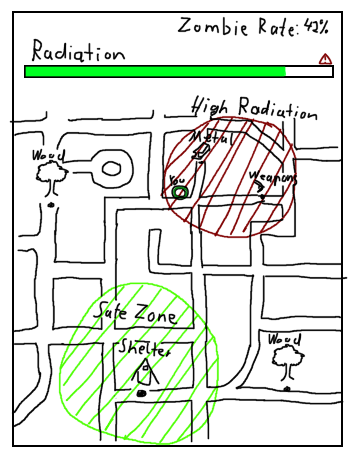 Zombie Rate: 42%
Radiation
High Radiation
Metal
Wood
You
Weapons
Safe Zone
Shelter
Wood